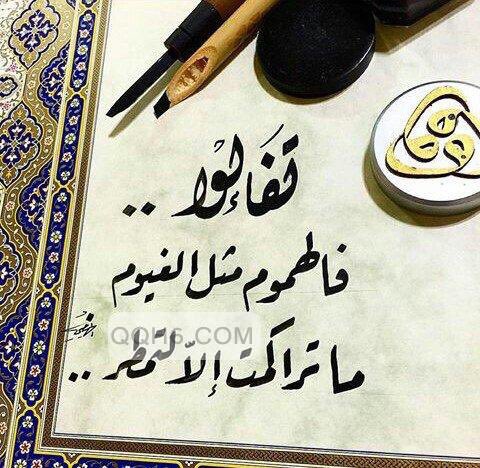 تفاءلوا ..
فالهموم مثل الغيوم
ما تراكمت إلاّ لتمطر ..
QQH6.COM